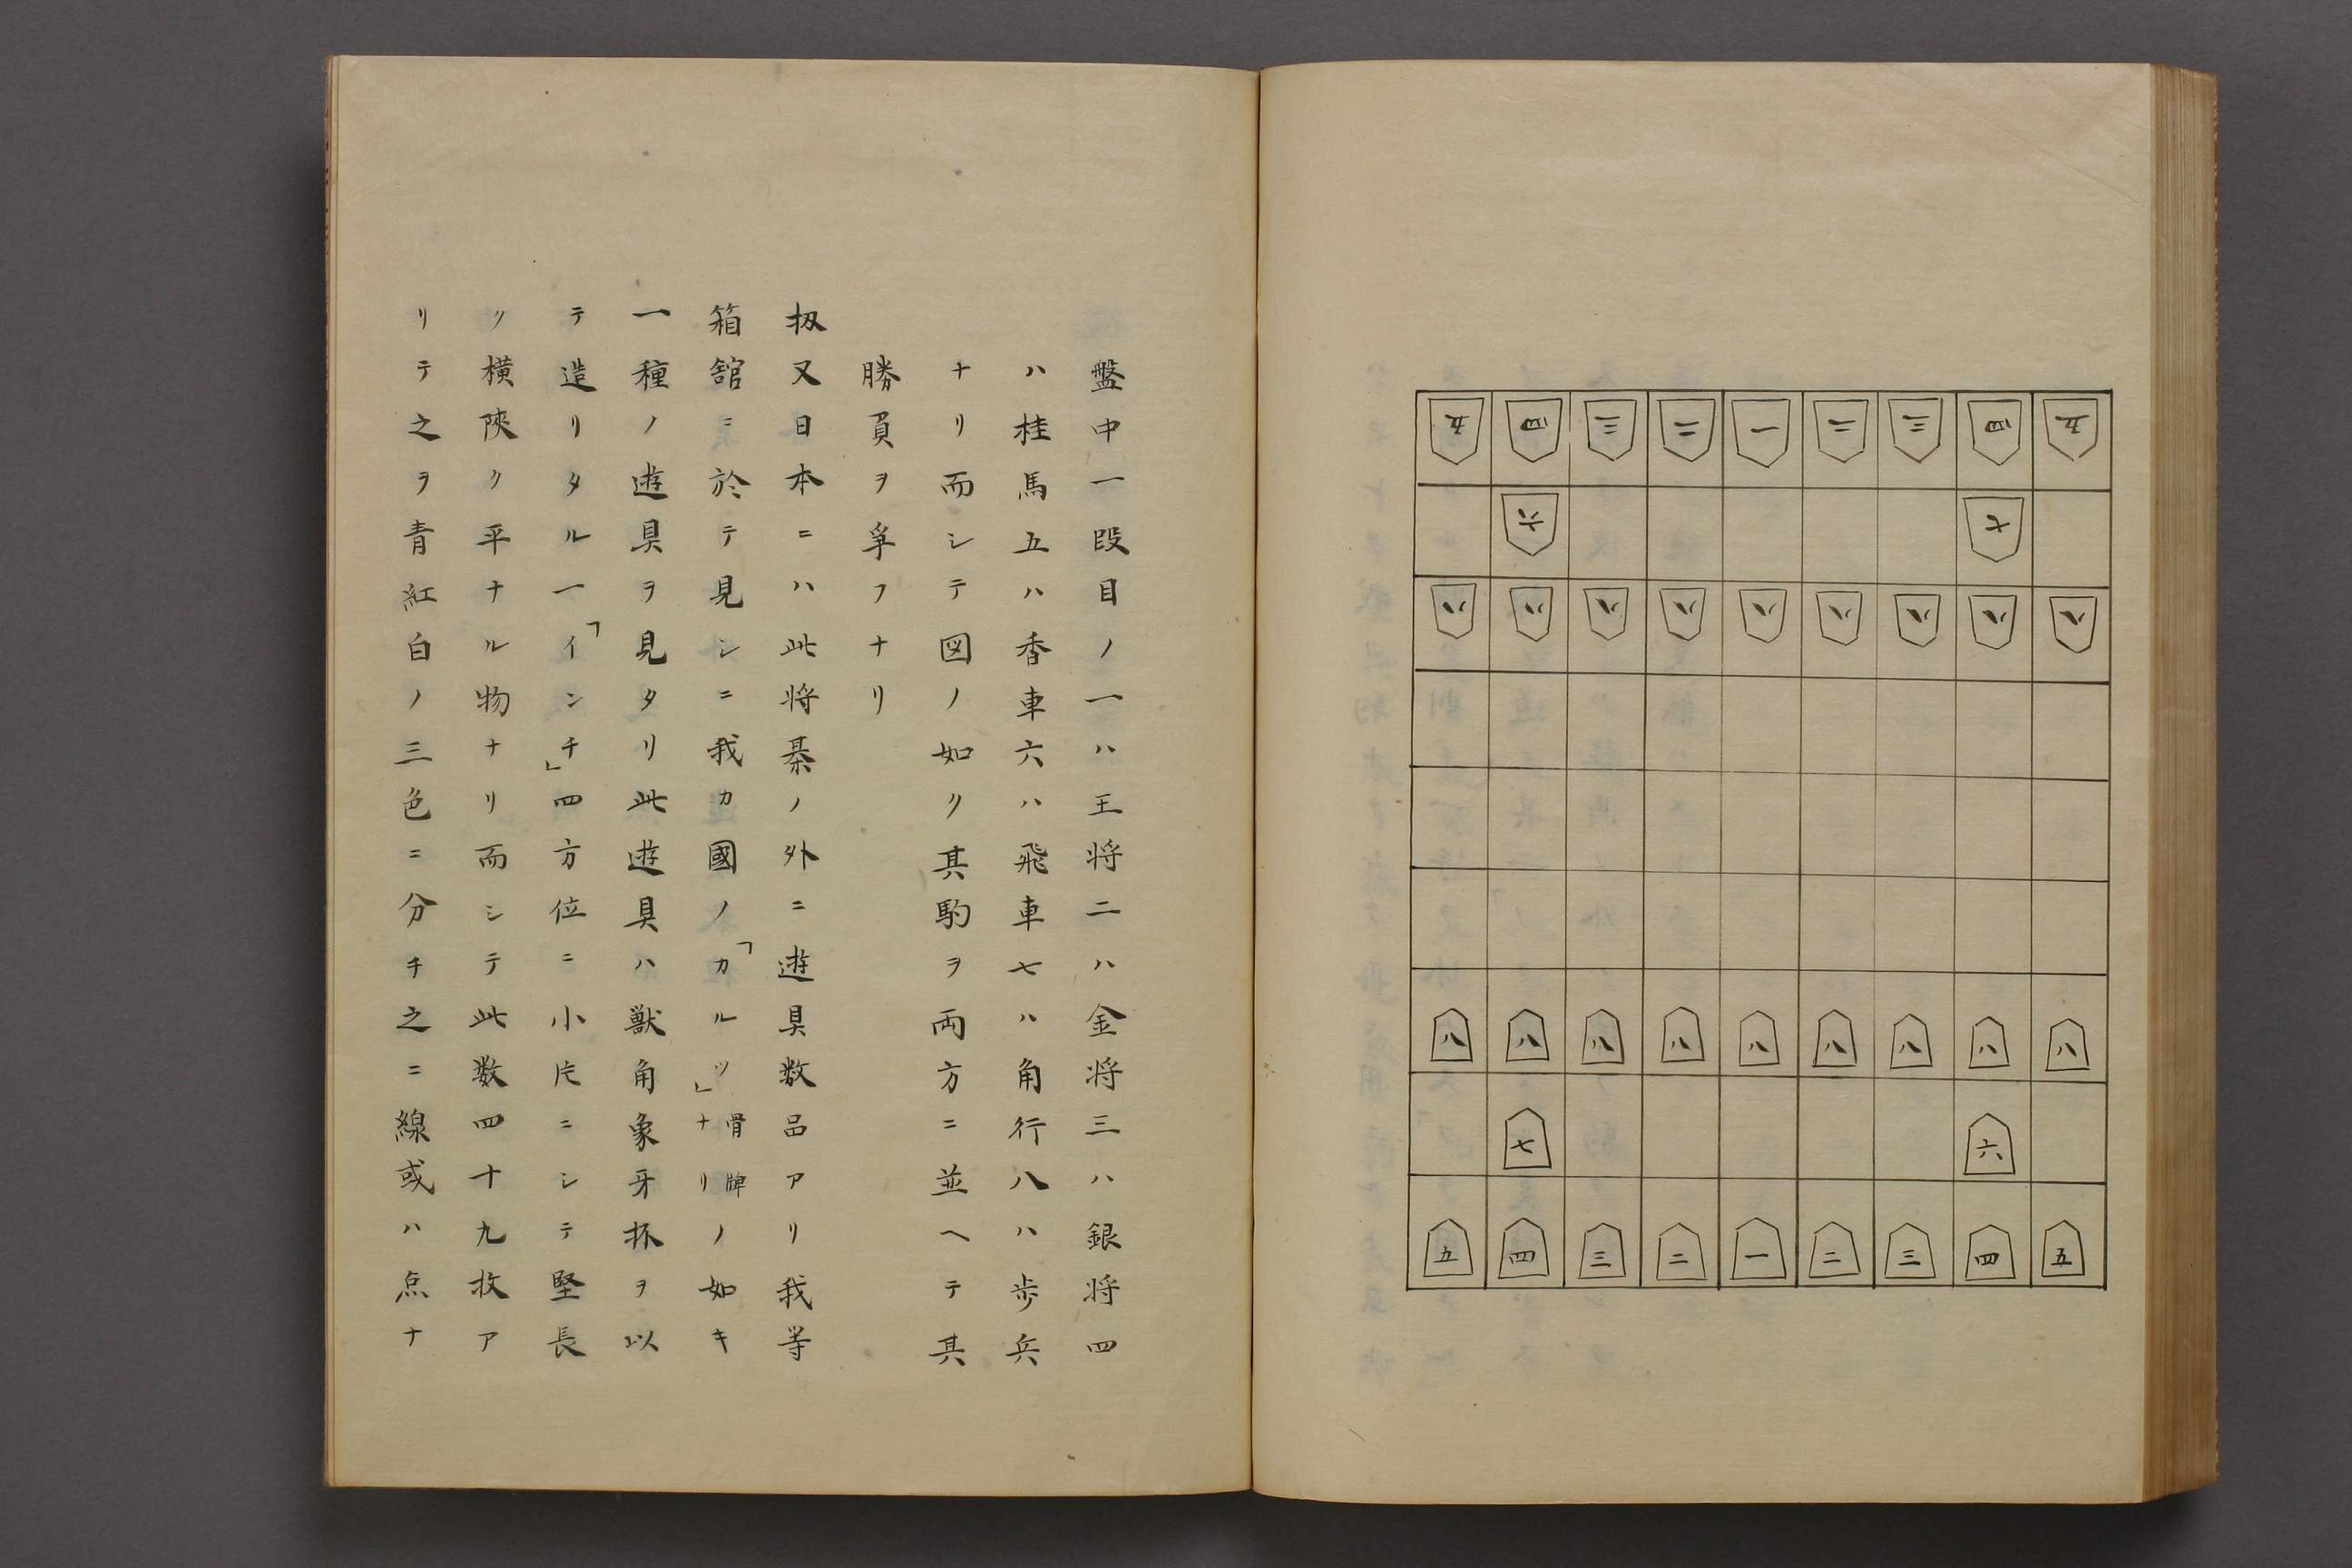 五四三二一二三四五
六七
八八八八八八八八八
八八八八八八八八八
七六
五四三二一二三四五
盤中一段目ノ一ハ王将二ハ金将三ハ銀将四
ハ桂馬五ハ香車六ハ飛車七ハ角行八ハ歩兵
ナリ而シテ図ノ如ク其駒ヲ両方ニ並ヘテ其
勝負ヲ爭フナリ
扨又日本ニハ此将棊ノ外ニ遊具数品アリ我等
箱館ニ於テ見シニ我カ國ノ「カルツ」骨牌ナリノ如キ
一種ノ遊具ヲ見タリ此遊具ハ獣角象牙抔ヲ以
テ造リタル一「インチ」四方位ニ小片ニシテ堅長
ク横陜ク平ナル物ナリ而シテ此数四十九枚ア
リテ之ヲ青紅白ノ三色ニ分チ之ニ線或ハ点ナ